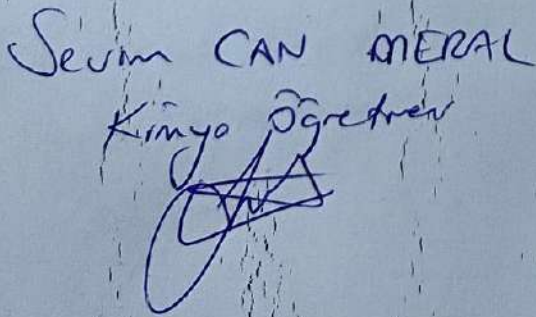 Sevim CAN MERAL
Kimya Öğretmen